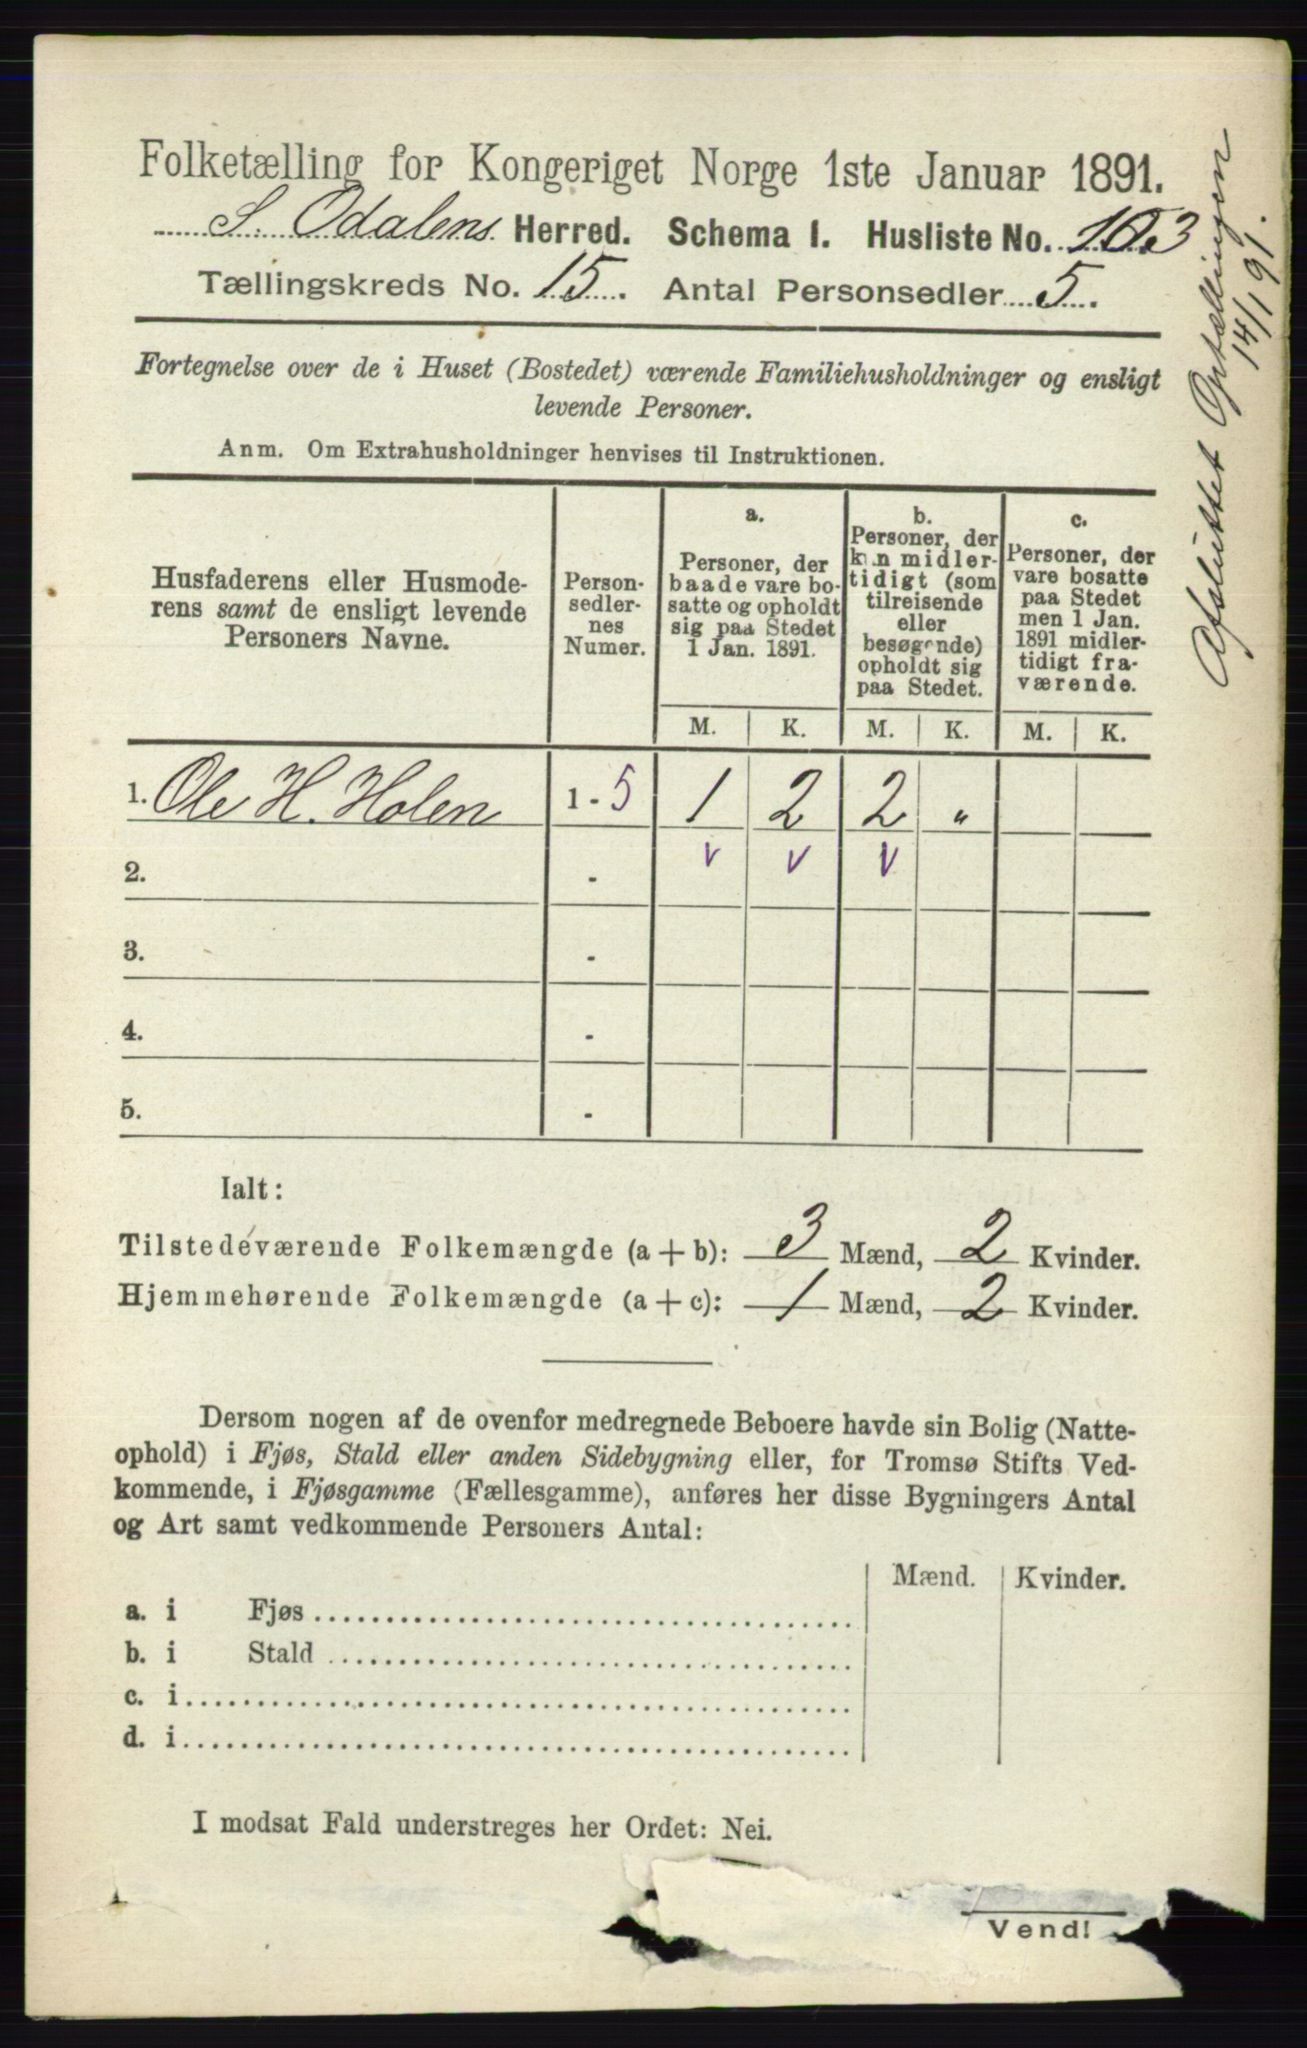 Folketælling for Kongeriget Norge 1ste Januar 1891.
S. Odalens Herred. Schema I. Husliste No. 103
Tællingskreds No. 15. Antal Personsedler 5.
Fortegnelse over de i Huset (Bostedet) værende Familiehusholdninger og ensligt
levende Personer.
Anm. Om Extrahusholdninger henvises til Instruktionen.
Husfaderens eller Husmode-
rens samt de ensligt levende
Personers Navne.
Person-
sedler-
nes
Numer.
a.
Personer, der
baade vare bo-
satte og opholdt
sig paa Stedet
1 Jan. 1891.
b.
Personer, der
kun midler-
tidigt (som
tilreisende
eller
besøgende)
opholdt sig
paa Stedet.
c.
Personer, der
vare bosatte
paa Stedet
men 1 Jan.
1891 midler-
tidigt fra-
værende.
M. K. M. K. M. K.
1. Ole H. Holen 1 - 5 1 2 2 "
2. - v v v
3. -
4. -
5. -
Ialt:
Tilstedeværende Folkemængde (a + b): 3 Mænd, 2 Kvinder.
Hjemmehørende Folkemængde (a + c): 1 Mænd, 2 Kvinder.
Dersom nogen af de ovenfor medregnede Beboere havde sin Bolig (Natte-
ophold) i Fjøs, Stald eller anden Sidebygning eller, for Tromsø Stifts Ved-
kommende, i Fjøsgamme (Fællesgamme), anføres her disse Bygningers Antal
og Art samt vedkommende Personers Antal:
Mænd. Kvinder.
a. i Fjøs
b. i Stald
c. i
d. i
I modsat Fald understreges her Ordet: Nei.
Vend!
Afsluttet Optællingen
14/1 91.